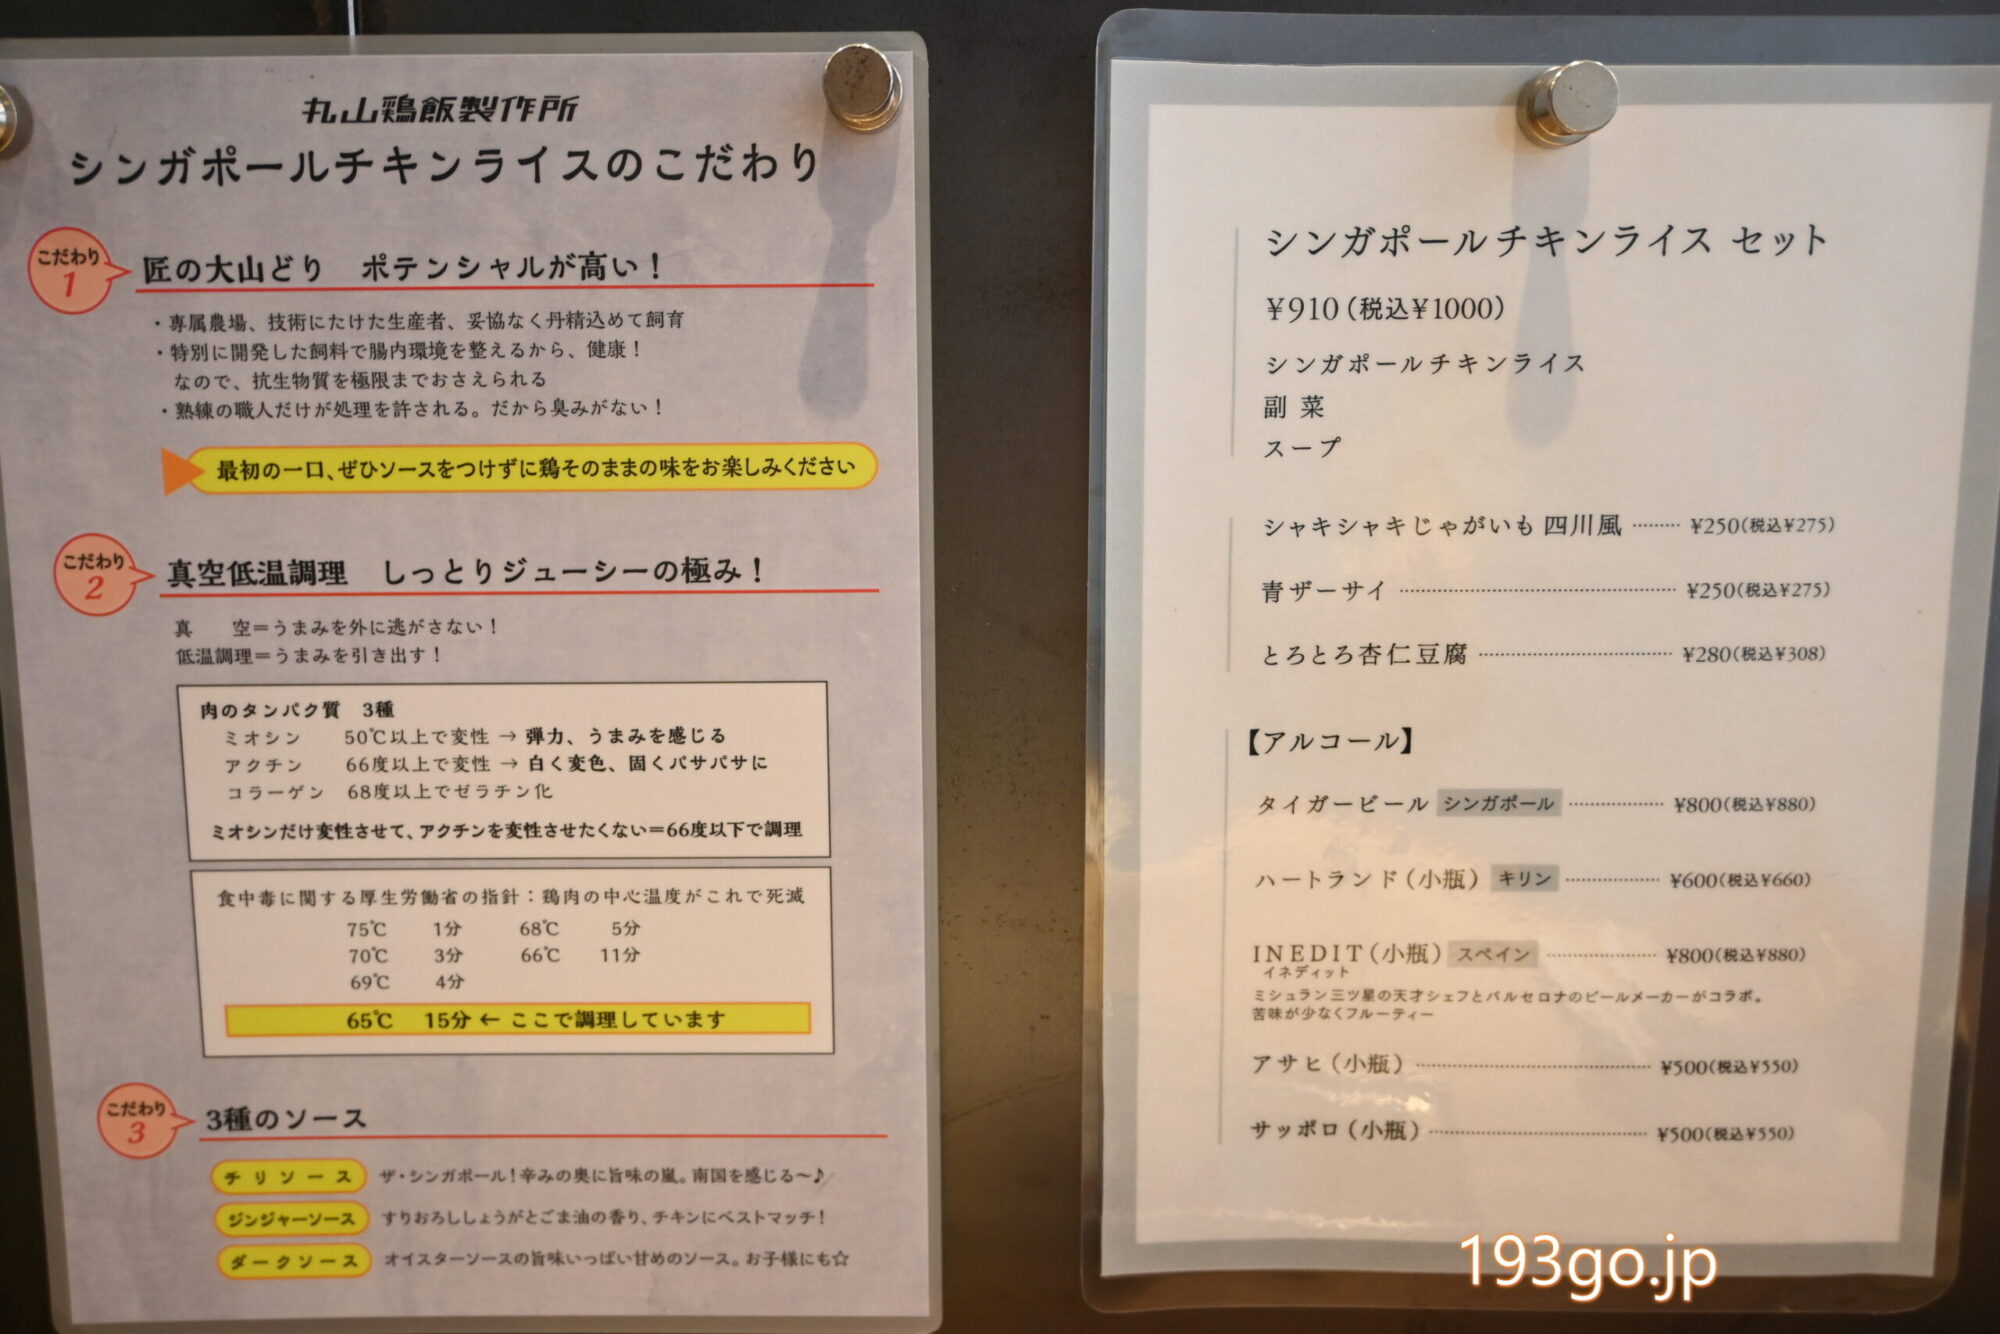 丸山鶏飯製作所
シンガポールチキンライスのこだわり
こだわり
1
匠の大山どり　ポテンシャルが高い！
・専属農場、技術にたけた生産者、妥協なく丹精込めて飼育
・特別に開発した飼料で腸内環境を整えるから、健康！
なので、抗生物質を極限までおさえられる
・熟練の職人だけが処理を許される。だから臭みがない！
最初の一口、ぜひソースをつけずに鶏そのままの味をお楽しみください
こだわり
2
真空低温調理　しっとりジューシーの極み！
真　空＝うまみを外に逃がさない！
低温調理＝うまみを引き出す！
肉のタンパク質　3種
ミオシン　50℃以上で変性 → 弾力、うまみを感じる
アクチン　66度以上で変性 → 白く変色、固くパサパサに
コラーゲン　68度以上でゼラチン化
ミオシンだけ変性させて、アクチンを変性させたくない＝66度以下で調理
食中毒に関する厚生労働省の指針：鶏肉の中心温度がこれで死滅
75℃　1分　68℃　5分
70℃　3分　66℃　11分
69℃　4分
65℃　15分 ← ここで調理しています
こだわり
3
3種のソース
チリソース　ザ・シンガポール！辛みの奥に旨味の嵐。南国を感じる〜♪
ジンジャーソース　すりおろししょうがとごま油の香り、チキンにベストマッチ！
ダークソース　オイスターソースの旨味いっぱい甘めのソース。お子様にも☆
シンガポールチキンライス セット
¥910（税込¥1000）
シンガポールチキンライス
副 菜
スープ
シャキシャキじゃがいも 四川風 ……… ¥250（税込¥275）
青ザーサイ ……… ¥250（税込¥275）
とろとろ杏仁豆腐 ……… ¥280（税込¥308）
【アルコール】
タイガービール シンガポール ……… ¥800（税込¥880）
ハートランド（小瓶） キリン ……… ¥600（税込¥660）
INEDIT（小瓶） スペイン ……… ¥800（税込¥880）
イネディット
ミシュラン三ツ星の天才シェフとバルセロナのビールメーカーがコラボ。
苦味が少なくフルーティー
アサヒ（小瓶） ……… ¥500（税込¥550）
サッポロ（小瓶） ……… ¥500（税込¥550）
193go.jp